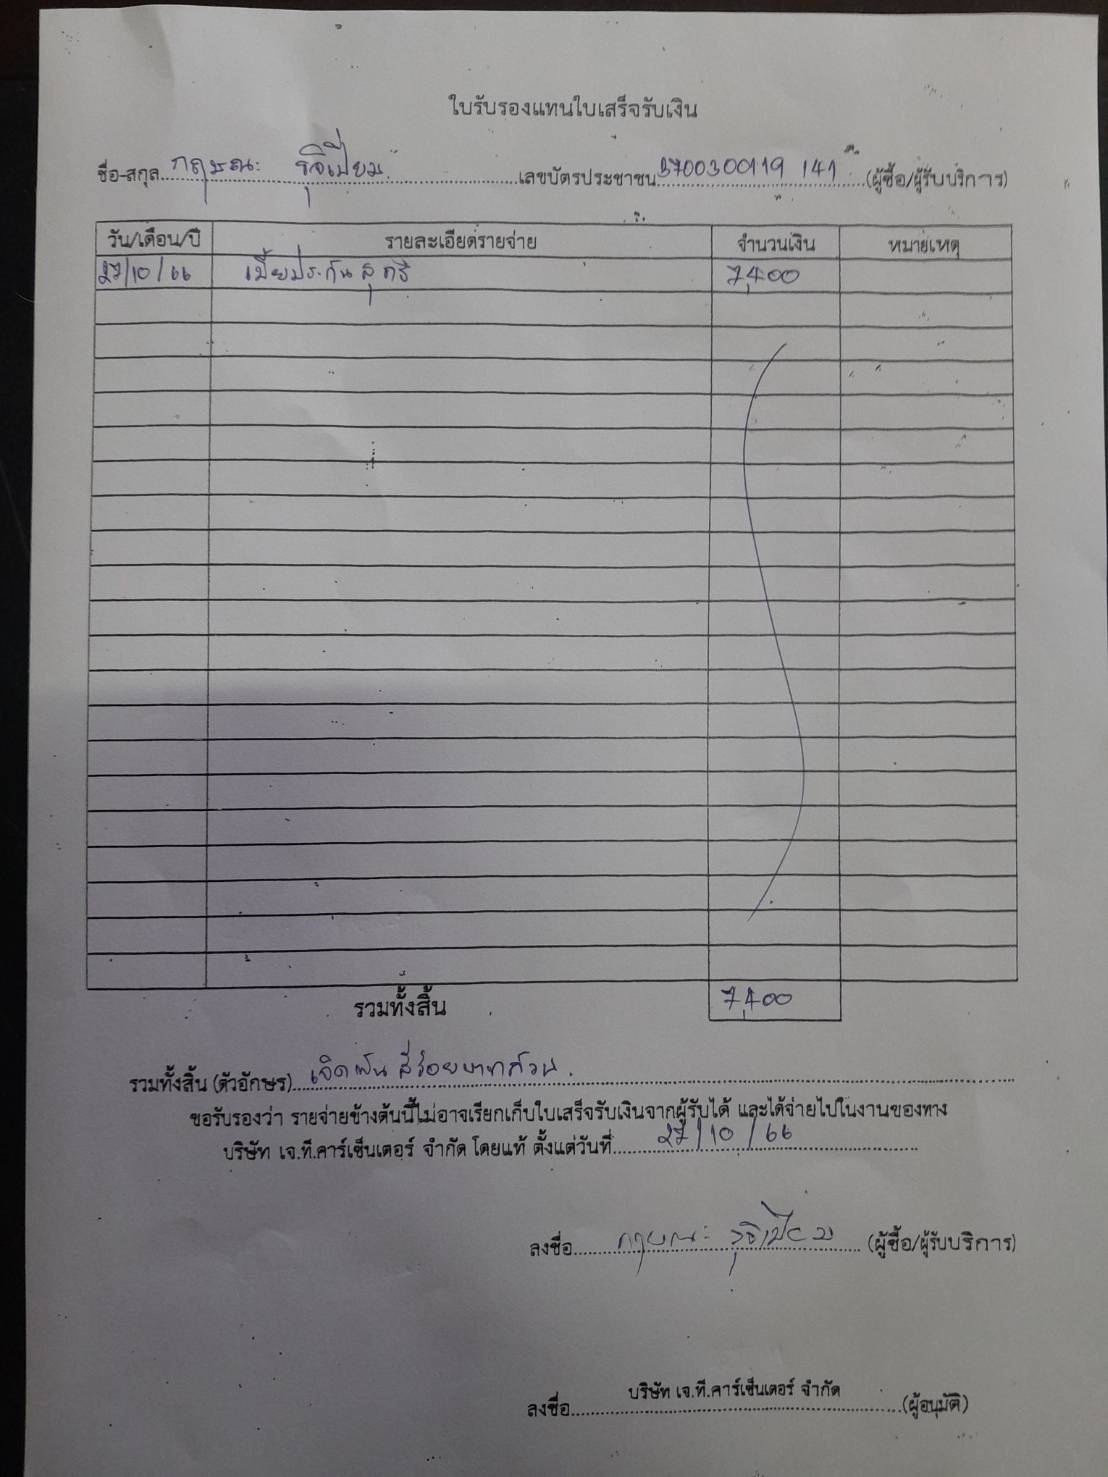 ใบรับรองแทนใบเสร็จรับเงิน
ชื่อ-สกุล กฤษณะ รุจิเปี่ยม เลขบัตรประชาชน 3700300119 141 (ผู้ซื้อ/ผู้รับบริการ)
วัน/เดือน/ปี รายละเอียดรายจ่าย จำนวนเงิน หมายเหตุ
27/10/66 เบี้ยประกัน 7,400
รวมทั้งสิ้น 7,400
รวมทั้งสิ้น (ตัวอักษร) เจ็ดพันสี่ร้อยบาทถ้วน.
ขอรับรองว่า รายจ่ายข้างต้นนี้ไม่อาจเรียกเก็บใบเสร็จรับเงินจากผู้รับได้ และได้จ่ายไปในงานของทาง
บริษัท เจ.ที.คาร์เซ็นเตอร์ จำกัด โดยแท้ ตั้งแต่วันที่ 27/10/66
ลงชื่อ กฤษณะ รุจิเปี่ยม (ผู้ซื้อ/ผู้รับบริการ)
บริษัท เจ.ที.คาร์เซ็นเตอร์ จำกัด
ลงชื่อ (ผู้อนุมัติ)